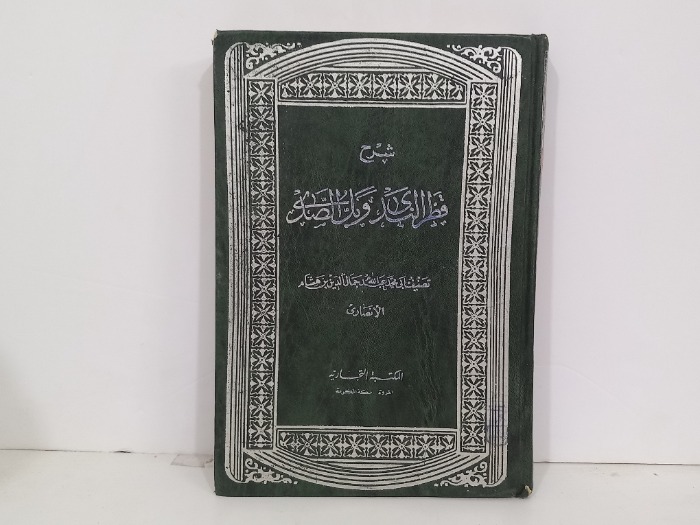 شرح
قطر الندى وبل الصدى
تصنيف أبي محمد عبد الله جمال الدين بن هشام
الأنصارى
المكتبة التجارية
المروة مكة المكرمة